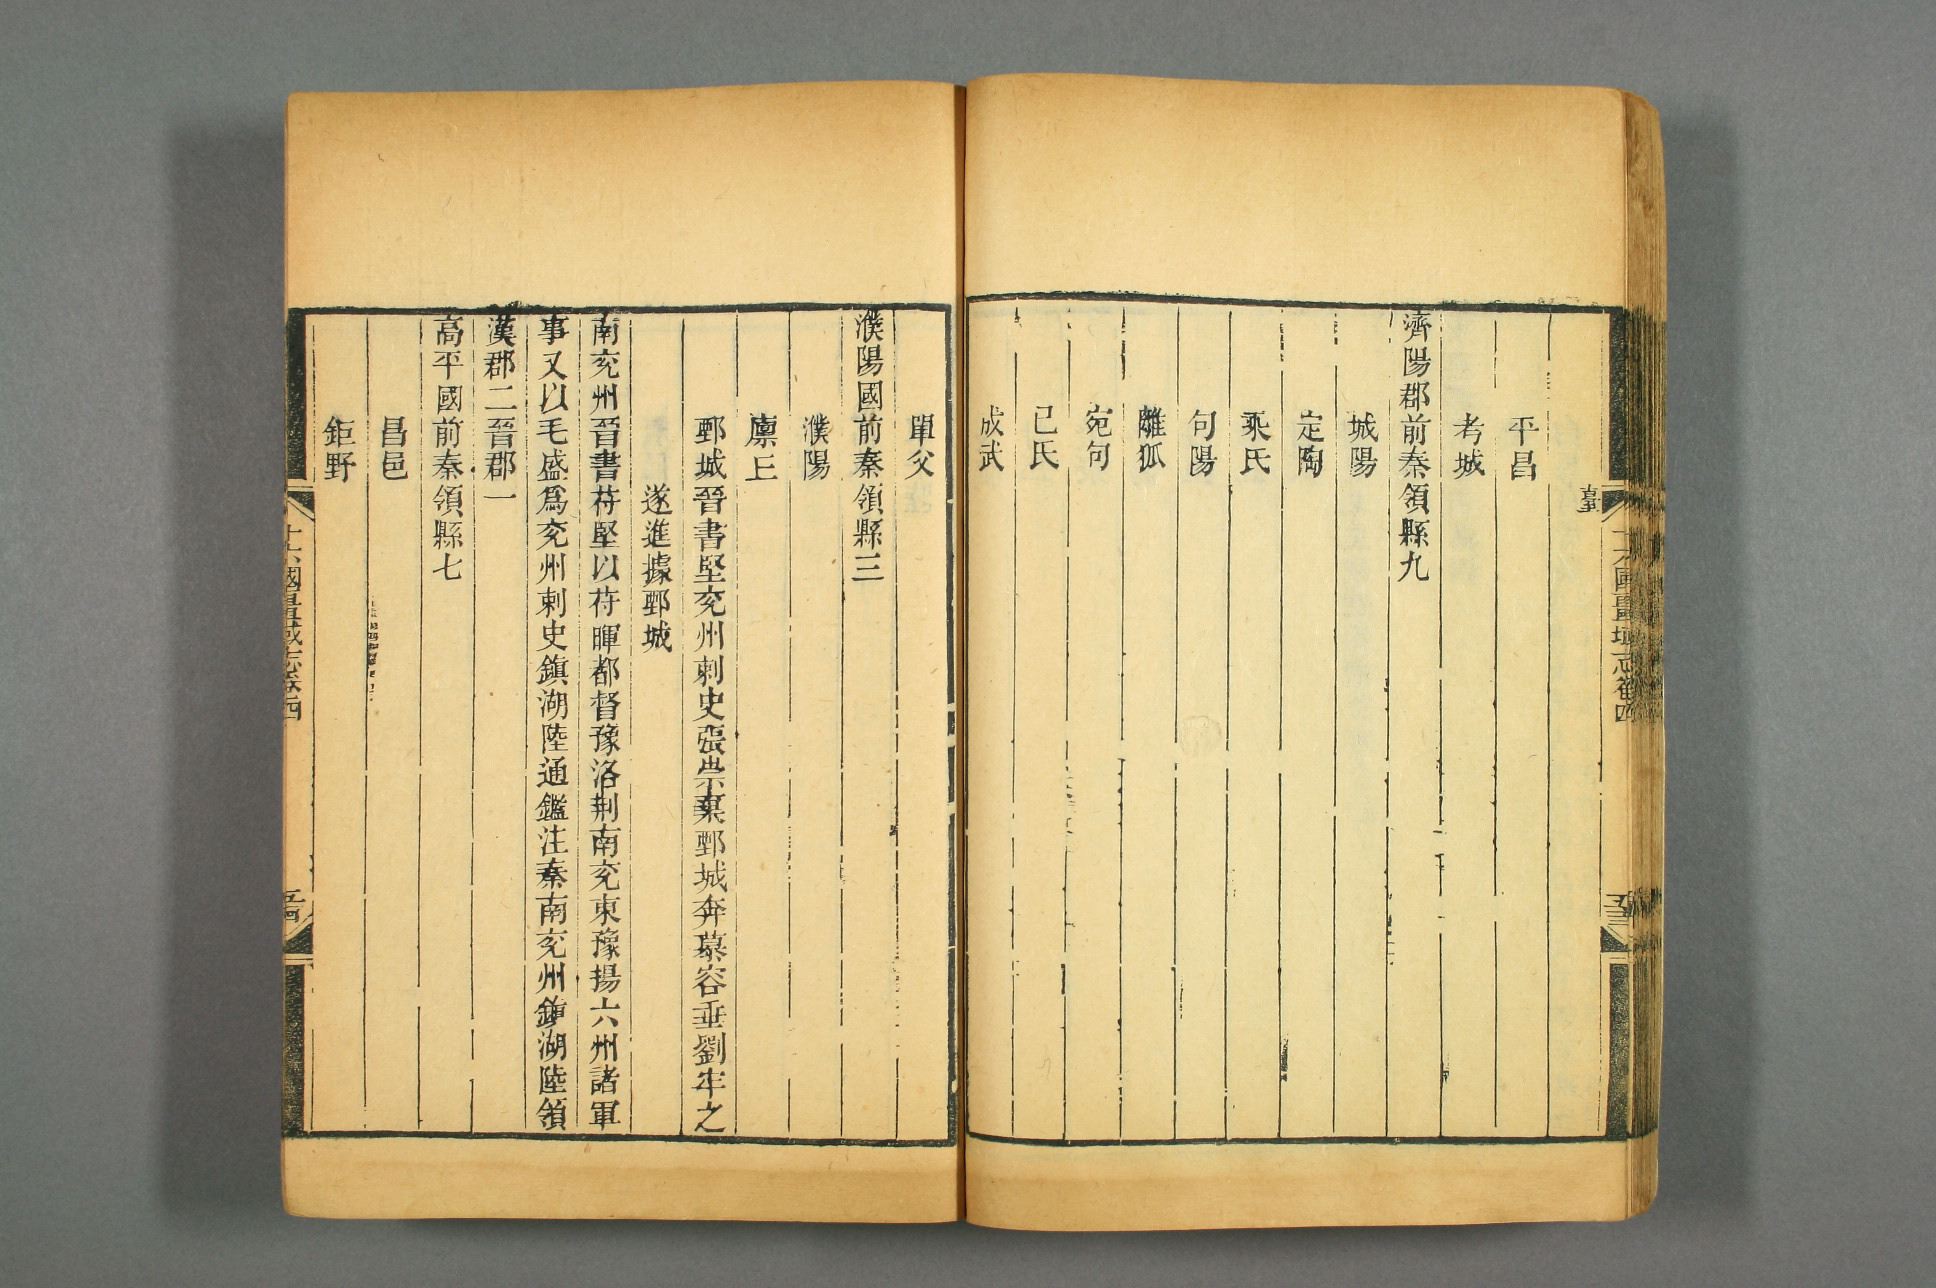 臺
平昌
考城
濟陽郡前秦領縣九
城陽
定陶
乘氏
句陽
離狐
宛句
已氏
成武
單父
濮陽國前秦領縣三
濮陽
廩丘
鄄城晉書堅兖州刺史張崇棄鄄城奔慕容垂劉牢之
遂進據鄄城
南兖州晉書苻堅以苻暉都督豫洛荆南兖東豫揚六州諸軍
事又以毛盛爲兖州刺史鎮湖陸通鑑注秦南兖州鎮湖陸領
漢郡二晉郡一
高平國前秦領縣七
昌邑
鉅野
十六國疆域志卷四